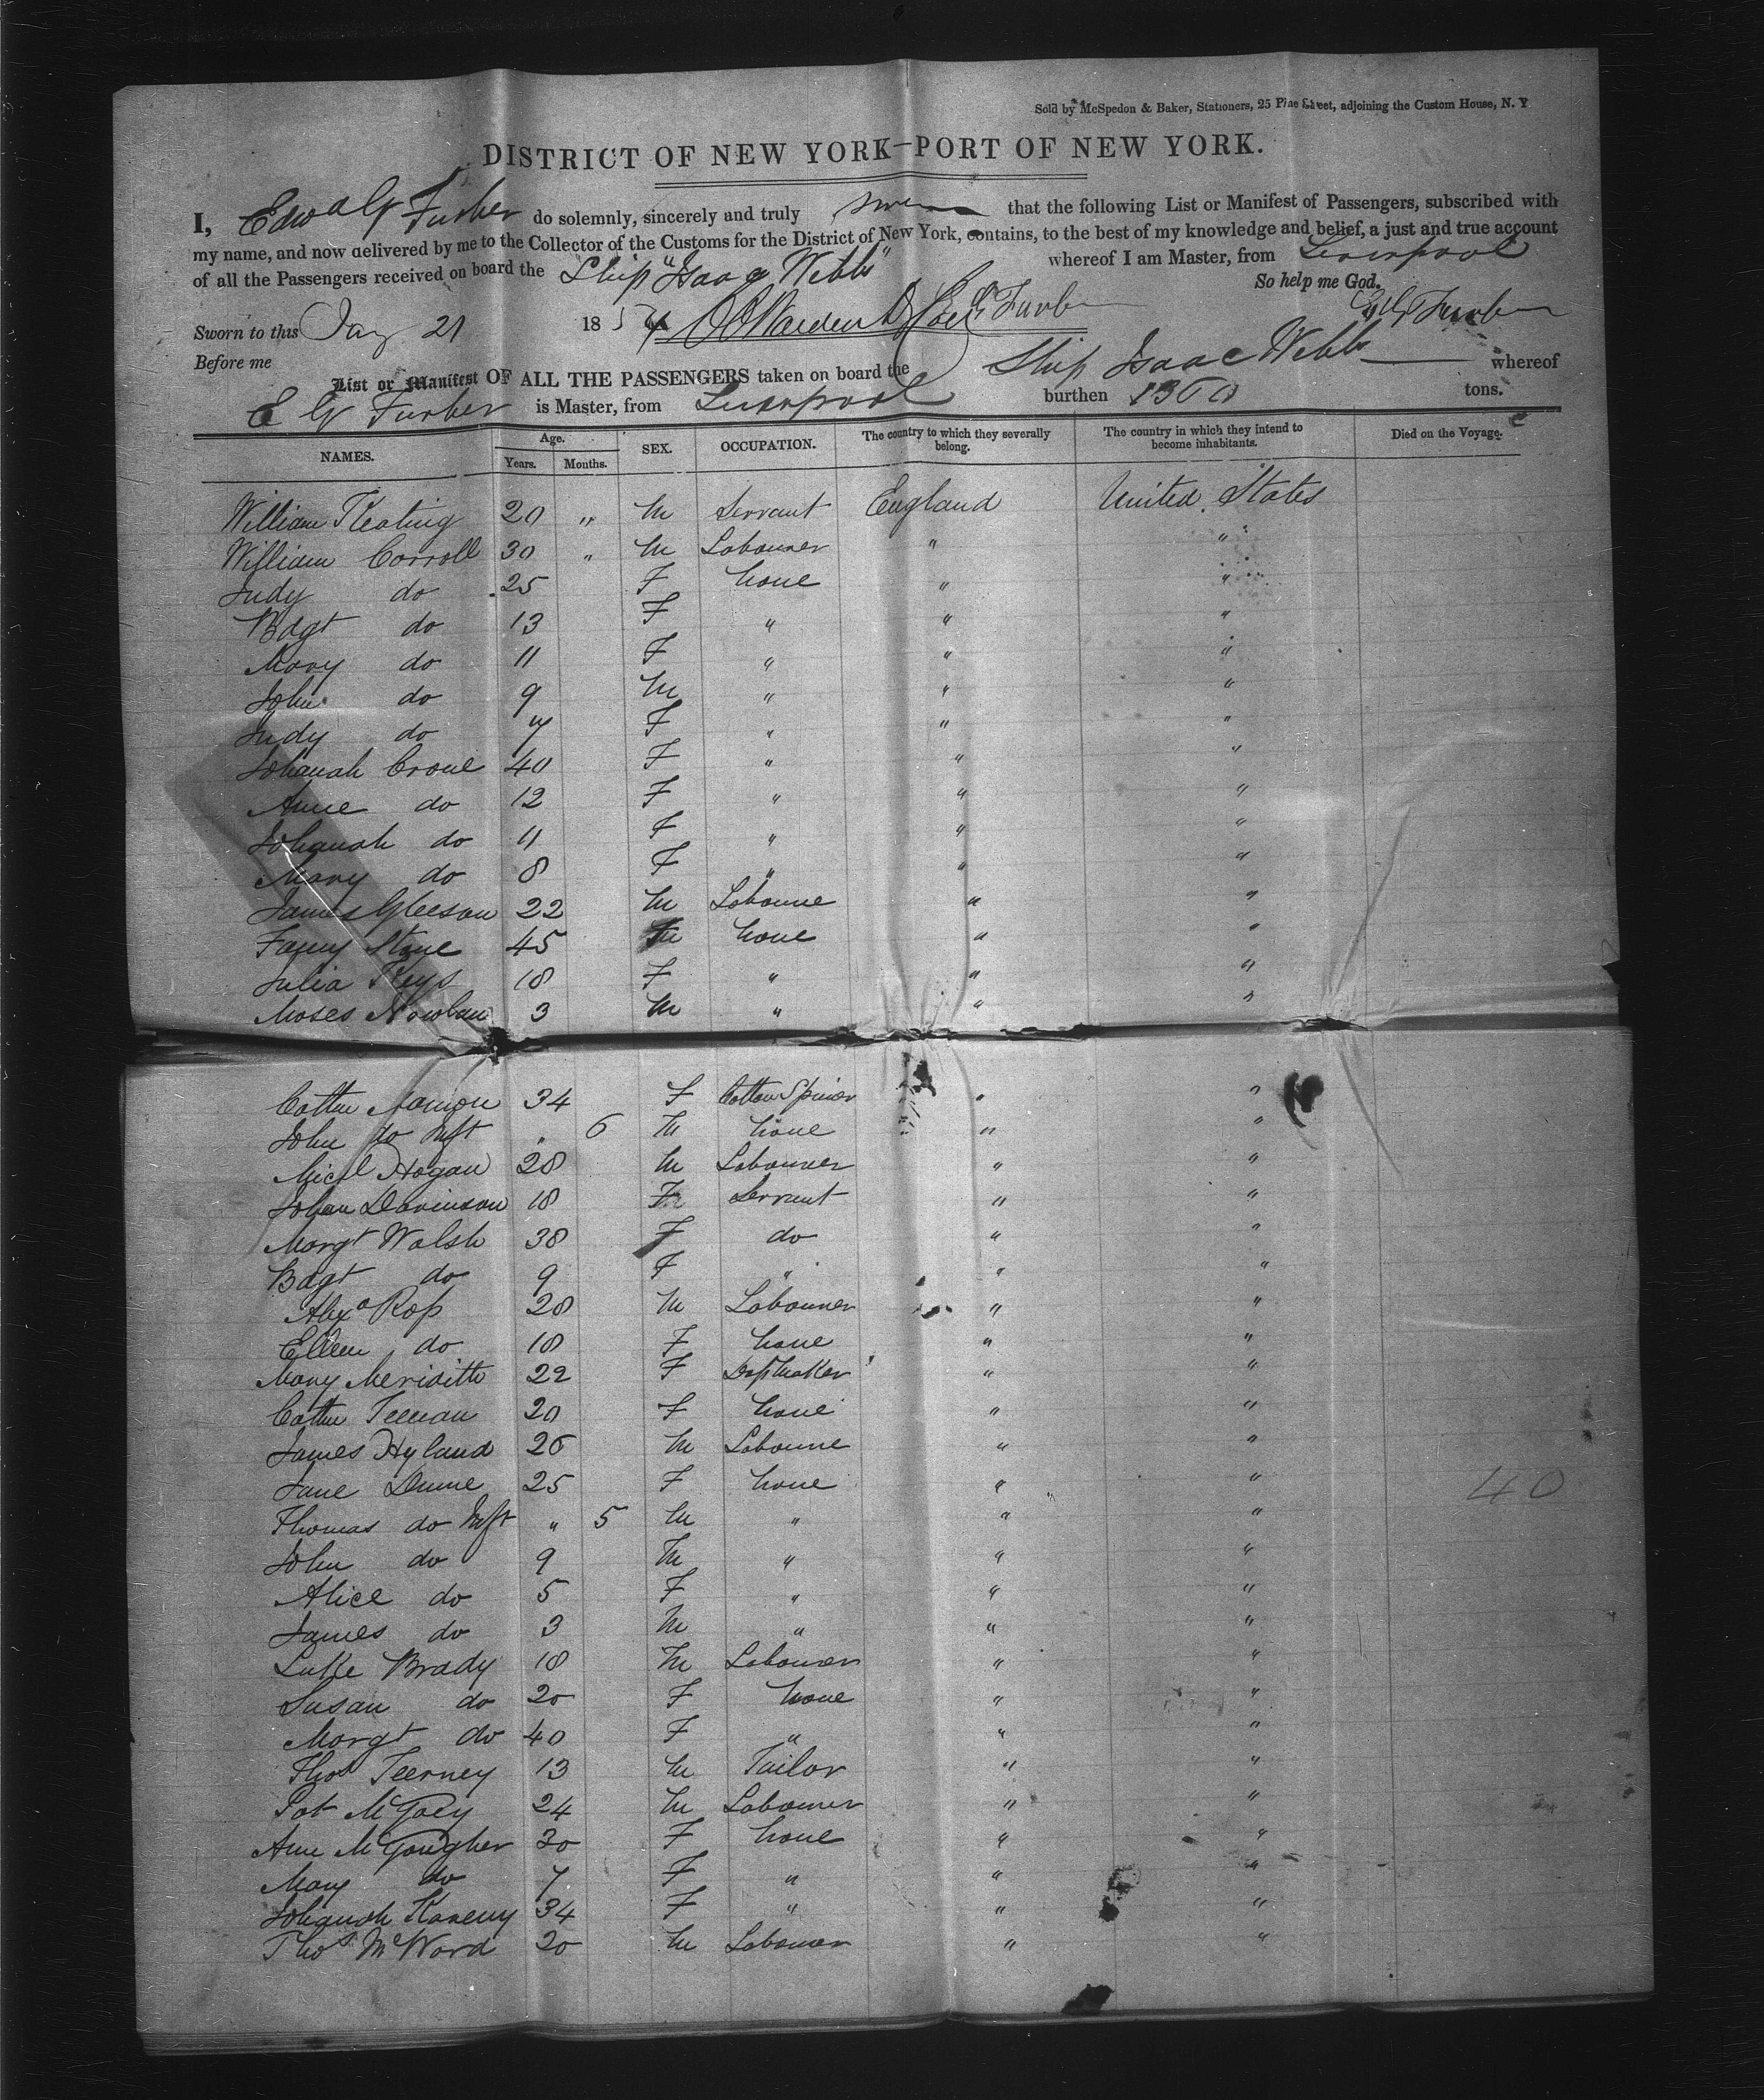 Sold by McSpedon & Baker, Stationers, 25 Pine Street, adjoining the Custom House, N. Y
DISTRICT OF NEW YORK—PORT OF NEW YORK.
I, Edwd G Furber do solemnly, sincerely and truly swear that the following List or Manifest of Passengers, subscribed with
my name, and now delivered by me to the Collector of the Customs for the District of New York, contains, to the best of my knowledge and belief, a just and true account
of all the Passengers received on board the Ship "Isaac Webb" whereof I am Master, from Liverpool
So help me God.
Sworn to this Jany 21 185 E G Furber
Before me
List or Manifest OF ALL THE PASSENGERS taken on board the Ship Isaac Webb whereof
E G Furber is Master, from Liverpool burthen 1300 tons.
NAMES. Age. Years. Months. SEX. OCCUPATION. The country to which they severally belong. The country in which they intend to become inhabitants. Died on the Voyage.
William Keating 20 " M Servant England United States
William Carroll 30 " M Labourer " "
Judy do 25 F None " "
Bdgt do 13 F " " "
Mary do 11 F " " "
John do 9 M " " "
Judy do 7 F " " "
Johanah Crone 40 F " " "
Anne do 12 F " " "
Johanah do 11 F " " "
Mary do 8 F " " "
James Gleeson 22 M Laboure " "
Fanny Stone 45 None " "
Julia Keys 18 F " " "
Moses Nowlan 3 M " " "
Cathe 34 F Cotton Spiner " "
John do Inft " 6 M None " "
Micl Hogan 28 M Labourer " "
Johan Davinson 18 F Servant " "
Margt Walsh 38 F do " "
Bdgt do 9 F " " "
Alexa Ross 28 M Labourer " "
Ellen do 18 F None " "
Mary Meridith 22 F DssMaker " "
Cathe Teenan 20 F None " "
James Hyland 26 M Laboure " "
Jane Dunne 25 F None " " 40
Thomas do Inft " 5 M " " "
John do 9 M " " "
Alice do 5 F " " "
James do 3 M " " "
Luke Brady 18 M Labourer " "
Susan do 20 F None " "
Margt do 40 F " " "
Thos Teerney 13 M Tailor " "
Pat McGoey 24 M Labourer " "
Ann McGaugher 30 F None " "
Mary do 7 F " " "
Johanah Kaneny 34 F " " "
Thos McWard 20 M Labourer " "